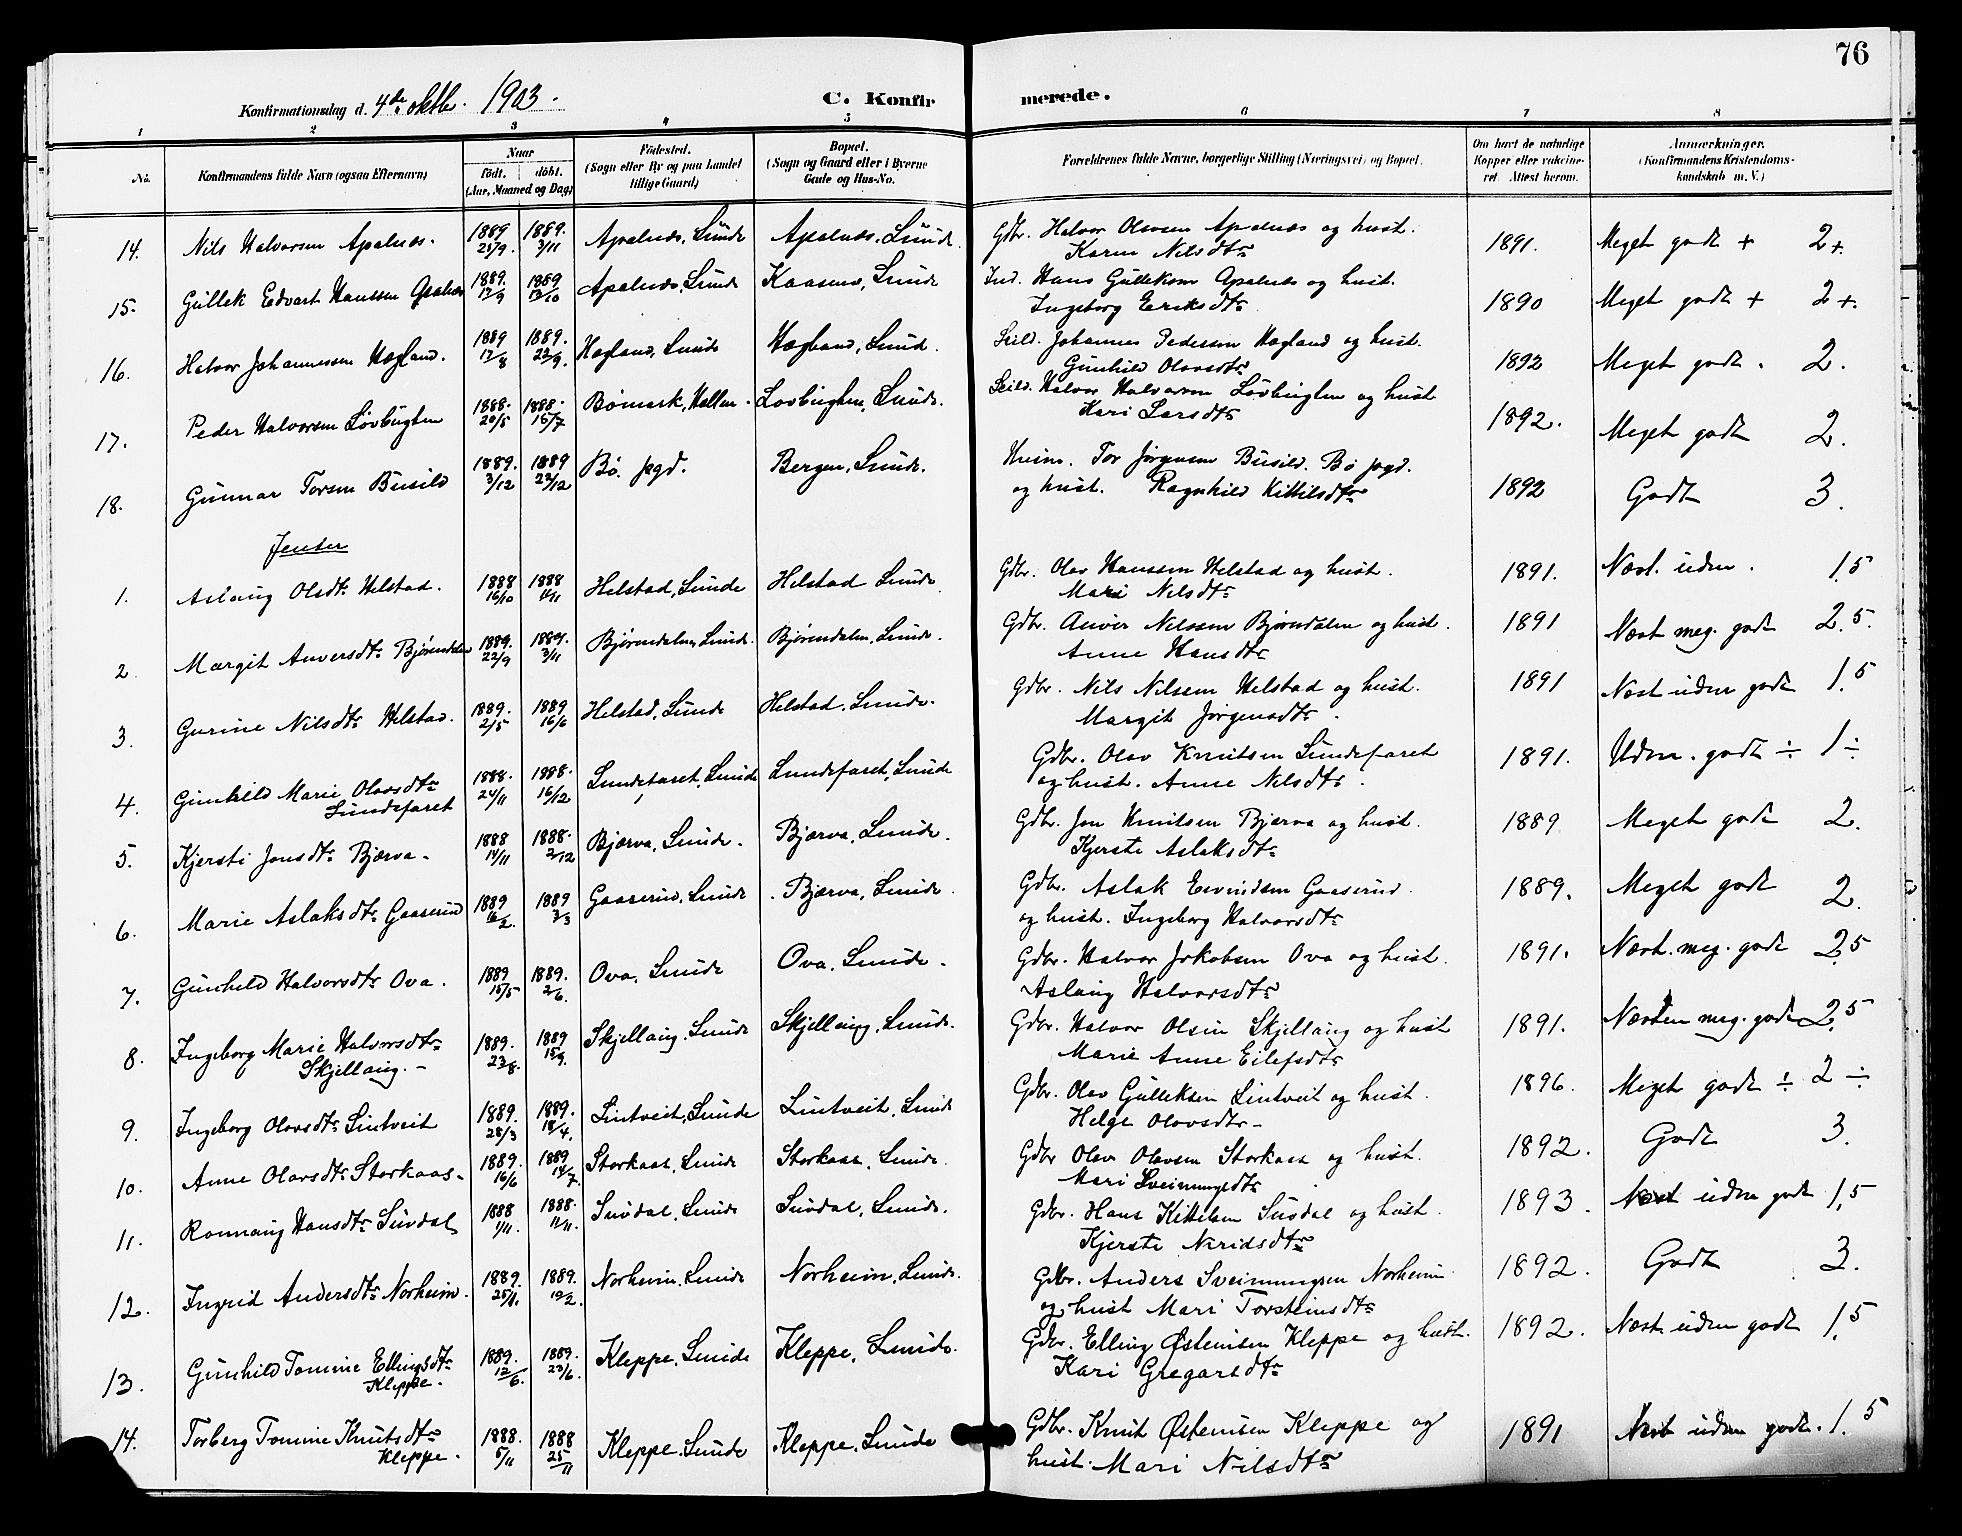 76
Konfirmationsdag d. 4de oktbr. 1903.
C. Konfirmerede.
1 2 3 4 5 6 7 8
No. Konfirmandens fulde Navn (ogsaa Efternavn) Naar født. døbt. (Aar, Maaned og Dag) Fødested. (Sogn eller By og paa Landet tillige Gaard) Bopæl. (Sogn og Gaard eller i Byerne Gade og Hus-No. Forældrenes fulde Navne, borgerlige Stilling (Næringsvei) og Bopæl. Om havt de naturlige Kopper eller vaccineret. Attest herom. Anmærkninger. (Konfirmandens Kristendomskundskab m. V.)
14. Nils Halvorsen Apalnæs. 1889 25/9. 1889. 3/11 Apalnæs, Lunde Apalnæs, Lunde. Gdbr. Halvor Olavsen Apalnæs og hust. Karen Nilsdtr 1891. Meget godt + 2+.
15. Gullek Edvart Hanssen Apalnæs 1889. 12/9 1889 13/10 Apalnæs, Lunde Kaasene, Lunde Ind. Hans Gulleksen Apalnæs og hust. Ingeborg Eriksdtr 1890 Meget godt + 2+.
16. Halvor Johannessen Hagland. 1889 12/8 1889. 22/9. Hagland, Lunde Hagland, Lunde. Seild. Johannes Pedersen Hagland og hust. Gunhild Olavsdtr 1892 Meget godt. 2.
17. Peder Halvorsen Løvbugten 1888. 20/5 1888. 15/7 Bømark, Hellen. Lovbugten, Lunde. Seild. Halvor Halvorsen Løvbugten og hust Kari Larsdtr 1892. Meget godt 2.
18. Gunnar Torsen Busild 1889. 3/12 1889 22/12 Bø. pgd. Bergen, Lunde. Husm. Tor Jørgensen Busild. Bø pgd. og hust. Ragnhild Kittilsdtr 1892 Godt 3.
Jenter
1. Aslaug Olsdtr Helstad. 1888 16/10 1888 4/11 Helstad, Lunde Helstad Lunde Gdbr. Olav Hanssen Helstad og hust. Mari Nilsdtr 1891. Næst. uden. 1,5
2. Margit Anversdtr Bjørndalen 1889. 22/9 1889. 3/11 Bjørndalen, Lunde. Bjørndalen, Lunde. Gdbr. Anver Nilssen Bjørndalen og hust. Anne Hansdtr 1891 Næst meg. godt 2,5.
3. Gurine Nilsdtr Helstad. 1889. 2/5 1889 16/6 Helstad, Lunde Helstad, Lunde. Gdbr. Nils Nilssen Helstad og hust. Margit Jørgensdtr. 1891 Næst uden godt 1,5
4. Gunhild Marie Olavsdtr Lundefaret 1888. 24/11 1888. 16/12 Lundefaret, Lunde Lundefaret, Lunde Gdbr. Olav Knutsen Lundefaret og hust. Anne Nilsdtr. 1891. Udm. godt ÷ 1 ÷
5. Kjersti Jonsdtr Bjærva. 1888 14/11 1888. 2/12 Bjærva, Lunde. Bjærva, Lunde. Gdbr. Jon Knutsen Bjærva og hust. Kjerste Aslaksdtr 1889 Meget godt 2.
6. Marie Aslaksdtr Gaaserud 1889 16/2. 1889 3/3 Gaaserud, Lunde Bjærva, Lunde. Gdbr. Aslak Eivindsen Gaaserud. og hust. Ingeborg Halvorsdtr 1889. Meget godt 2.
7. Gunhild Halvorsdtr Ova. 1889 15/5 1889. 2/6. Ova, Lunde Ova, Lunde. Gdbr. Halvor Jakobsen Ova og hust. Aslaug Halvorsdtr 1891. Næst. meg. godt 2,5
8. Ingeborg Marie Halvorsdtr Skjellaug. 1889. 23/8. 1889 15/9. Skjellaug, Lunde Skjellaug, Lunde. Gdbr. Halvor Olsen Skjellaug og hust Marie Anne Eilefsdtr 1891. Næsten meg. godt 2,5
9. Ingeborg Olavsdtr Lintveit 1889. 28/3 1889. 18/4. Lintveit, Lunde Lintveit, Lunde Gdbr. Olav Gulleksen Lintveit og hust. Helge Olavsdtr 1896. Meget godt ÷ 2 ÷
10. Anne Olavsdtr Storkaas. 1889. 16/6 1889 14/7. Storkaas, Lunde Storkaas, Lunde. Gdbr Olav Olavsen Storkaas og hust. Mari Sveinungdtr 1892. Godt 3.
11. Ronnaug Hansdtr Suvdal 1888 1/11. 1888. 11/11. Suvdal, Lunde Suvdal, Lunde. Gdbr. Hans Kittelsen Suvdal og hust. Kjerste Neridsdtr 1893. Næst uden godt 1,5
12. Ingrid Andersdtr Norheim. 1889. 25/1. 1889. 10/2. Norheim, Lunde Norheim, Lunde. Gdbr. Anders Sveinungsen Norheim og hust Mari Torsteinsdtr 1892. Godt 3.
13. Gunhild Tomine Ellingsdtr Kleppe. 1889. 12/6. 1889. 23/6. Kleppe, Lunde Kleppe, Lunde. Gdbr. Elling Østensen Kleppe og hust. Kari Gregarsdtr 1892. Næst uden godt 1,5
14. Torberg Tomine Knutsdtr Kleppe. 1888. 5/11 1888 25/11 Kleppe, Lunde Kleppe, Lunde Gdbr. Knut Østensen Kleppe og hust. Mari Nilsdtr 1891 Næst uden godt. 1,5